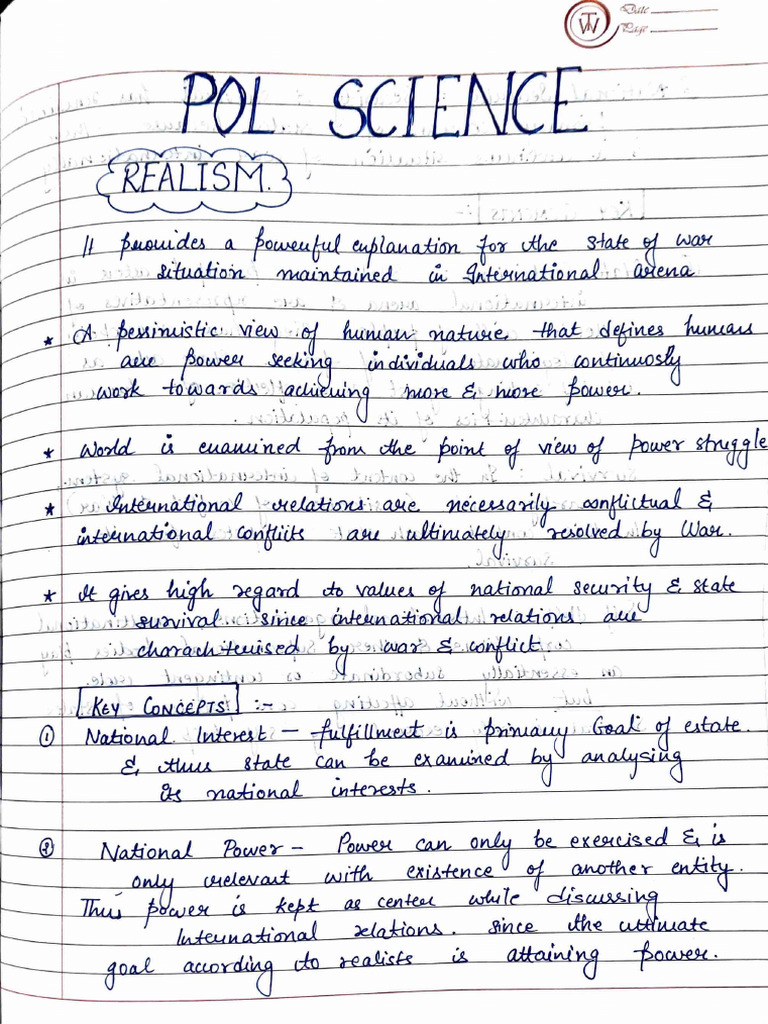 Date
Page
POL. SCIENCE
REALISM.
It provides a powerful explanation for the state of war
situation maintained in International arena
* A pessimistic view of human nature that defines humans
are power seeking individuals who continuosly
work towards achieving more & more power.
* World is examined from the point of view of power struggle
* International relations are necessarily conflictual &
international conflicts are ultimately resolved by War.
* It gives high regard to values of national security & state
survival since international relations are
charachterised by war & conflict
KEY CONCEPTS :-
① National Interest — fulfillment is primary Goal of estate.
& thus state can be examined by analysing
its national interests.
② National Power — Power can only be exercised & is
only relevant with existence of another entity.
Thus power is kept as center while discussing
International relations. since the ultimate
goal according to realists is attaining power.